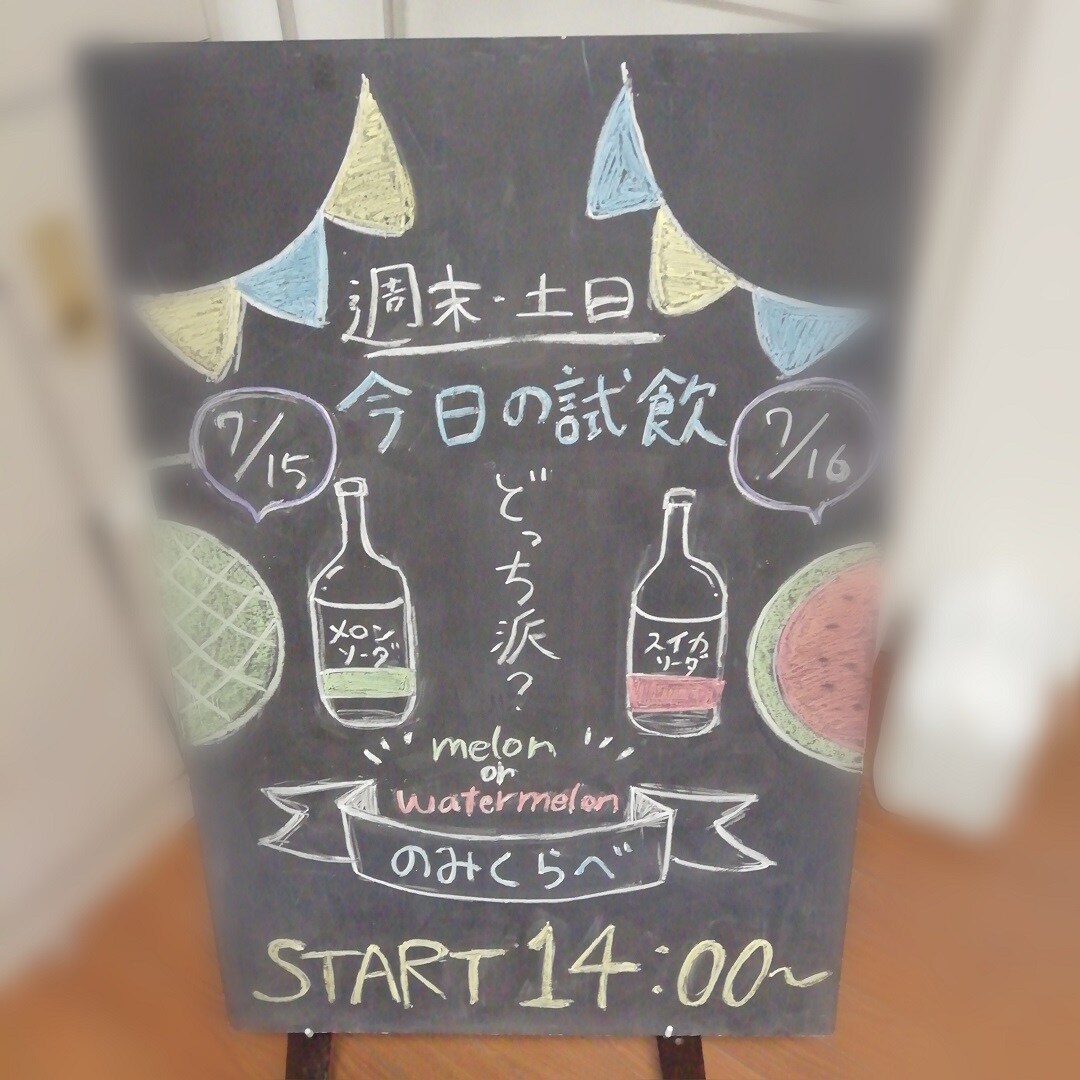 週末・土日
今日の試飲
7/15
7/16
どっち派?
メロン
ソーダ
スイカ
ソーダ
melon
or
watermelon
のみくらべ
START 14:00~